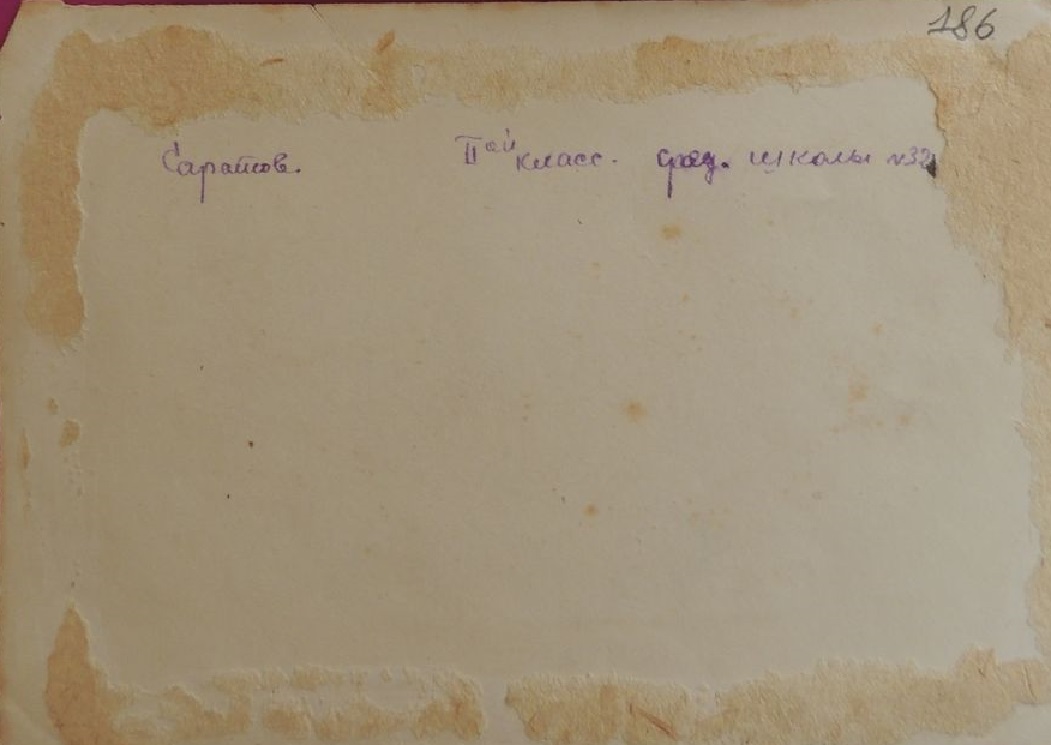 186
Саратов. II ой класс. сред. школы №32